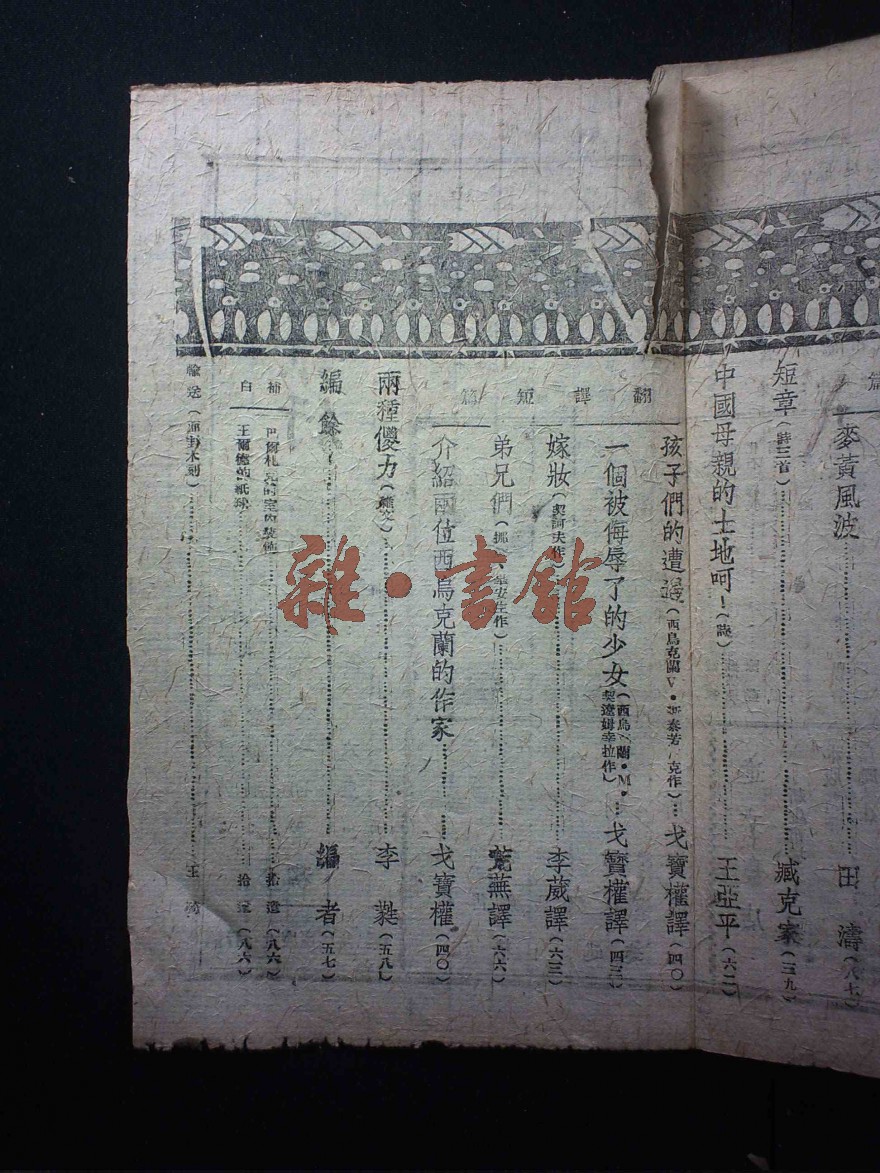 篇
麥黃風波……田濤(八七)
短章(詩三首)……臧克家(三九)
中國母親的土地呵！(詩)……王亞平(六二)
翻譯短篇
孩子們的遭遇(西烏克蘭V·作)…戈寶權譯(四〇)
一個被侮辱了的少女(西烏克蘭·M·契遼姆幸拉作)…戈寶權譯(四三)
嫁妝(契訶夫作)……李葳譯(六三)
弟兄們(挪作)……荒蕪譯(六六)
介紹兩位西烏克蘭的作家……戈寶權(四〇)
兩種傻力(雜文)……李蕤(五八)
編餘……編者(五七)
補白
巴爾札克的室內裝飾……拾遺(八六)
王爾德的紙……拾遺(八六)
輸送(木刻)……王琦
雜·書館